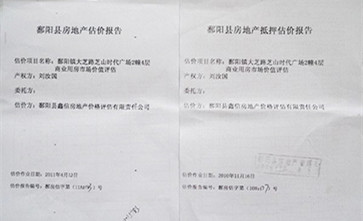 鄱阳县房地产估价报告
估价项目名称:鄱阳镇大芝路芝山时代广场2幢4层
商业用房市场价值评估
产权方:刘汝国
委托方:
估价方:鄱阳县鑫信房地产价格评估有限责任公司
估价作业日期:2011年4月12日
估价报告编号:鄱房估字第
号
鄱阳县房地产抵押估价报告
估价项目名称:鄱阳镇大芝路芝山时代广场2幢4层
商业用房市场价值评估
产权方:刘汝国
委托方:
估价方:鄱阳县鑫信房地产价格评估有限责任公司
估价作业日期:2010年11月16日
估价报告编号:鄱房估字第
号